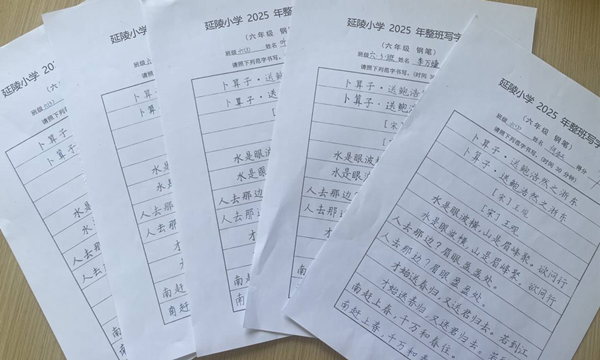 延陵小学 20
（六
班级
请照下列
卜算子
卜算子
水
水
人去
人去
南
南赶
延陵小学
班级
请照下
卜算子·
卜算子·
水是
水是
人去那
人去那
才
南赶
南赶
延陵小学 2025 年
（六年级
班级
请照下列范字书写。
卜算子·送
卜算子·送
水是眼
水是眼
人去那边
人去那边
才
南赶
南赶
延陵小学 2025 年整班写字
（六年级 钢笔）
班级 姓名 李
请照下列范字书写。（时间 30
卜算子·送鲍浩
卜算子·送鲍浩
［宋］
水是眼波
水是眼波
人去那边？
人去那边？
才始
南赶
延陵小学 2025 年整班写字
（六年级 钢笔）
班级 姓名 得分
请照下列范字书写。（时间 30 分钟）
卜算子·送鲍浩然之浙东
卜算子·送鲍浩然之浙东
［宋］王观
［宋］王观
水是眼波横，山是眉峰聚。欲问行
水是眼波横，山是眉峰聚。欲问行
人去那边？眉眼盈盈处。
人去那边？眉眼盈盈处。
才始送春归，又送君归去。若到江
才始送春归，又送君归去。若
南赶上春，千万和春住。
南赶上春，千万和